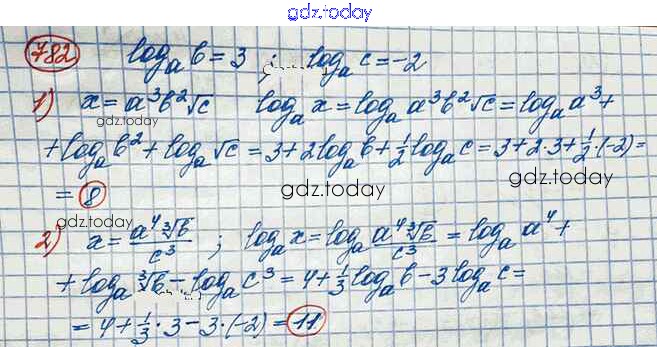 gdz.today
782 log_a b = 3 ; log_a c = -2
1) x = a³b²√c log_a x = log_a a³b²√c = log_a a³ +
gdz.today
gdz.today
+ log_a b² + log_a √c = 3 + 2log_a b + ½ log_a c = 3 + 2·3 + ½·(-2) =
gdz.today
gdz.today
= 8
gdz.today
2) x = a⁴∛b / c³ ; log_a x = log_a a⁴∛b / c³ = log_a a⁴ +
+ log_a ∛b - log_a c³ = 4 + ⅓ log_a b - 3 log_a c =
= 4 + ⅓·3 - 3·(-2) = 11
gdz.today